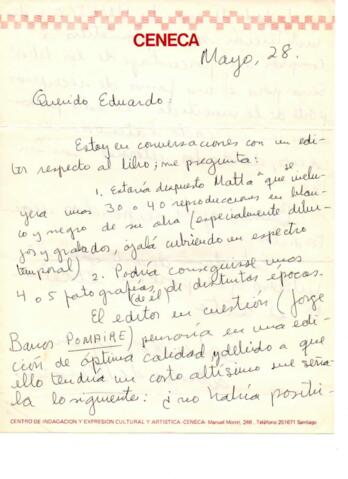 CENECA
Mayo, 28.
Querido Eduardo:
Estoy en conversaciones con un edi-
tor respecto al libro; me pregunta:
1. Estaría dispuesto Matta a que se inclu-
yera unos 30 o 40 reproducciones en blan-
co y negro de su obra (especialmente dibu-
jos y grabados, ojalá cubriendo un espectro
temporal) 2. Podría conseguirse unos
4 o 5 fotografías (de él) de distintas épocas.
El editor en cuestión (Jorge
Barros POMAIRE) pensaría en una edi-
ción de óptima calidad y debido a que
ello tendría un costo altísimo me seña-
la lo siguiente: ¿no habría positi-
CENTRO DE INDAGACION Y EXPRESION CULTURAL Y ARTISTICA -CENECA- Manuel Montt, 246. Teléfono 251671 Santiago